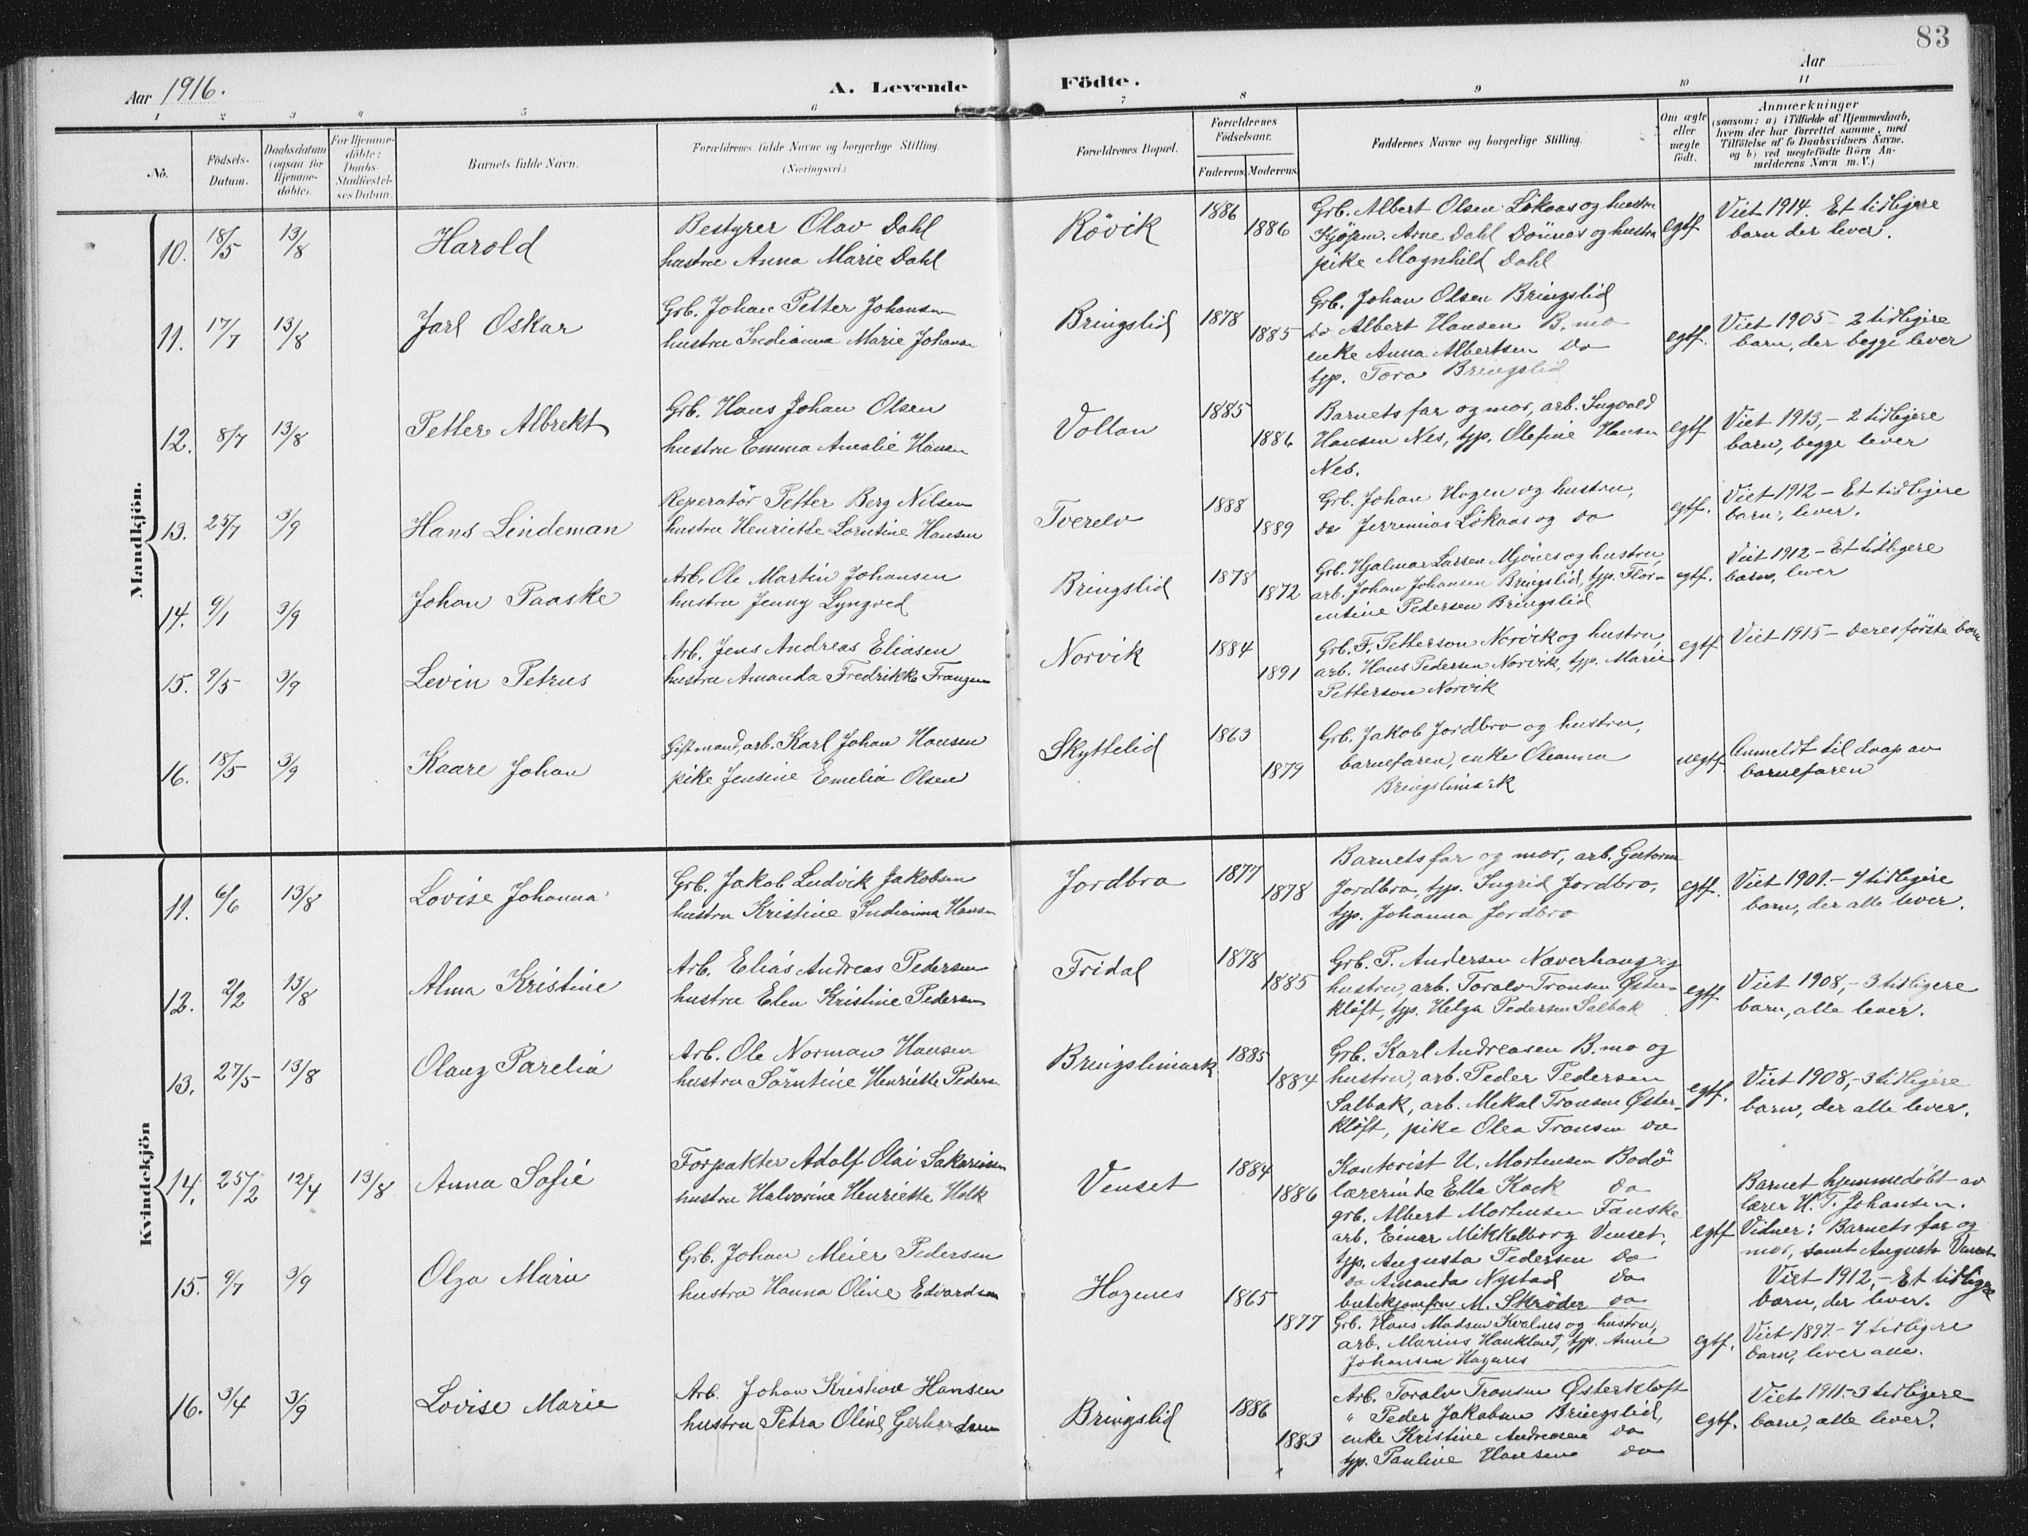 83
Aar 1916.
A. Levende Födte.
Aar
1 2 3 4 5 6 7 8 9 10 11
No.
Födsels-Datum.
Daabsdatum (ogsaa for Hjemme-döbte).
For Hjemme-döbte: Daabs-Stadfæstel-ses Datum
Barnets fulde Navn.
Forældrenes fulde Navne og borgerlige Stilling. (Næringsvei.)
Forældrenes Bopæl.
Forældrenes Födselsaar.
Faderens. Moderens.
Faddernes Navne og borgerlige Stilling.
Om ægte eller uægte født.
Anmærkninger
(saasom: a) i Tilfælde af Hjemmedaab,
hvem der har forrettet samme, med
Tilföielse af to Daabsvidners Navne,
og b) ved uegtefödte Börn An-
melderens Navn m. V.)
Mandkjön.
10. 18/5 13/8 Harold
Bestyrer Olav Dahl
hustru Anna Marie Dahl
Rövik 1886 1886
Grb. Albert Olsen Lökaas og hustru
Kjøpm. Arne Dahl Dönnes og hustru
pike Magnhild Dahl
egtf.
Viet 1914. Et tidligere
barn der lever.
11. 17/7 13/8 Jarl Oskar
Grb. Johan Petter Johansen
hustru Indianna Marie Johansen
Bringslid 1878 1885
Grb. Johan Olsen Bringslid
do Albert Hansen B.mo
enke Anna Albertsen do
typ. Tora Bringslid
egtf.
Viet 1905 - 2 tidligere
barn, der begge lever
12. 8/7 13/8 Petter Albrekt
Grb. Hans Johan Olsen
hustru Emma Amalie Hansen
Vollan 1885 1886
Barnets far og mor, arb. Ingvald
Hansen Nes, typ. Olefine Hansen
Nes.
egtf
Viet 1913, - 2 tidligere
barn, begge lever
13. 25/7 3/9 Hans Lindeman
Reperatör Petter Berg Nilsen
hustru Henriette Lorntine Hansen
Tverelv 1888 1889
Grb. Johan Hagen og hustru,
do Jerremias Lökaas og do
egtf.
Viet 1912 - Et tidligere
barn, lever.
14. 9/1 3/9 Johan Paaske
Arb. Ole Martin Johansen
hustru Jenny Lyngved
Bringslid 1878 1872
Grb. Hjalmar Larsen Mjönes og hustru,
arb. Johan Johansen Bringslid, typ. Flor-
entine Pedersen Bringslid
egtf.
Viet 1912 - Et tidligere
barn, lever
15. 9/5 3/9 Levin Petrus
Arb. Jens Andreas Eliasen
hustru Amanda Fredrikke
Norvik 1884 1891
Grb. F. Petterson Norvik og hustru,
arb. Hans Pedersen Norvik, typ. Marie
Petterson Norvik
egtf
Viet 1915 - deres første barn
16. 18/5 3/9 Kaare Johan
Gift mand, arb. Karl Johan Hansen
pike Jensine Emelia Olsen
Skyttelid 1863 1879
Grb. Jakob Jordbro og hustru,
barnefaren, enke Oleanna
Bringslimark
uegtf.
Anmeldt til daap av
barnefaren
Kvindekjön
11. 6/6 13/8 Lovise Johanna
Grb. Jakob Ludvik Jakobsen
hustru Kristine Indianna Hansen
Jordbro 1877 1878
Barnets far og mor, arb. Guttorm
Jordbro, typ. Ingrid Jordbro,
typ. Johanna Jordbro
egtf.
Viet 1901. - 4 tidligere
barn, der alle lever.
12. 2/2 13/8 Alma Kristine
Arb. Elias Andreas Pedersen
hustru Elen Kristine Pedersen
Fridal 1878 1885
Grb. P. Andersen Næverhaug og
hustru, arb. Toralv Tronsen Øster-
kløft, typ. Helga Pedersen Salbak
egtf.
Viet 1908, - 3 tidligere
barn, alle lever.
13. 27/5 13/8 Olaug Parelia
Arb. Ole Norman Hansen
hustru Sörntine Henriette Pedersen
Bringslimark 1885 1884
Grb. Karl Andreasen B.mo og
hustru, arb. Peder Pedersen
Salbak, arb. Mekal Tronsen Øster-
kløft, pike Olea Tronsen do
egtf.
Viet 1908, - 3 tidligere
barn, der alle lever.
14. 25/2 12/4 13/8 Anna Sofie
Forpakter Adolf Olai Sakariassen
hustru Halvorine Henriette Holk
Venset 1884 1886
Kontorist U. Mortensen Bodö
lærerinde Ella Kock do
grb. Albert Mortensen Fauske
arb. Einar Mikkelborg Venset,
typ. Augusta Pedersen do
do Amanda Nystad do
butikjomfru M. Skröder do
egtf
Barnet hjemmedöbt av
lærer H. T. Johansen.
Vidner: Barnets far og
mor, samt Augusta Venset
Viet 1912, - Et tidligere
barn, der lever.
15. 9/7 3/9 Olga Marie
Grb. Johan Meier Pedersen
hustru Hanna Oline Edvardsen
Hagenes 1865 1877
Grb. Hans Madsen Kvalnes og hustru,
arb. Marius Haukland, typ. Anne
Johansen Hagenes
egtf.
Viet 1897. - 4 tidligere
barn, lever alle.
16. 3/4 3/9 Lovise Marie
Arb. Johan Kristian Hansen
hustru Petra Oline Gerhardsen
Bringslid 1886 1883
Arb. Toralv Tronsen Østerkløft
" Peder Jakobsen Bringslid,
enke Kristine Andreasen do
typ. Pauline Hansen do
egtf.
Viet 1911. - 3 tidligere
barn, alle lever.